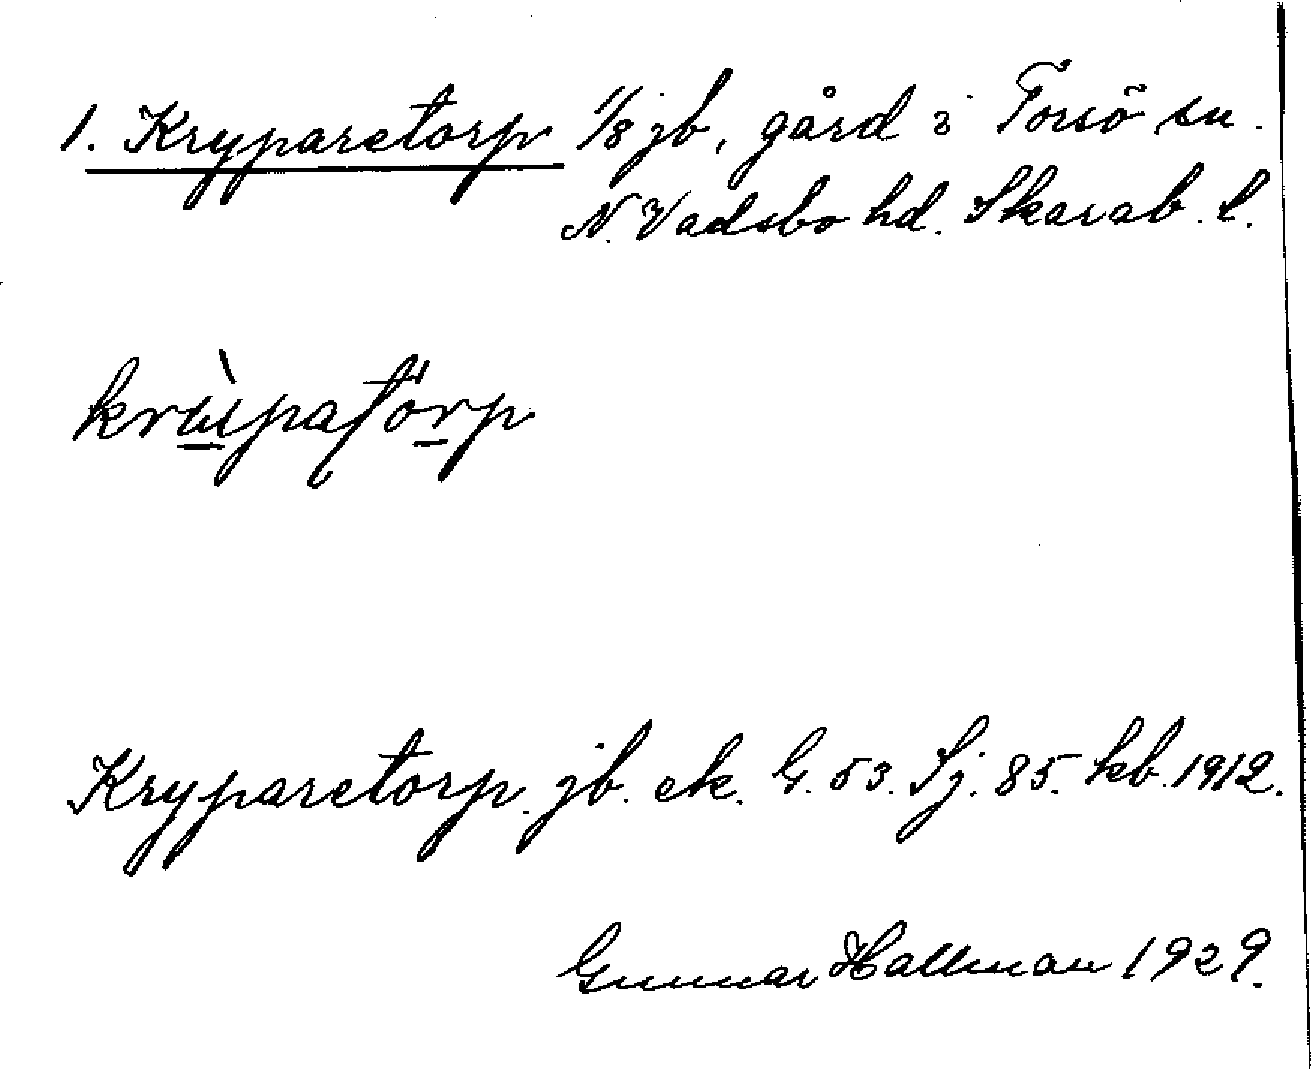 1. Kryparetorp 1/8 jb, gård i Torsö sn.
N. Vadsbo hd. Skarab. l.
Kryparetorp. jb. ek. G. 53. Sj. 85. kb. 1912.
Gunnar Hallman 1929.